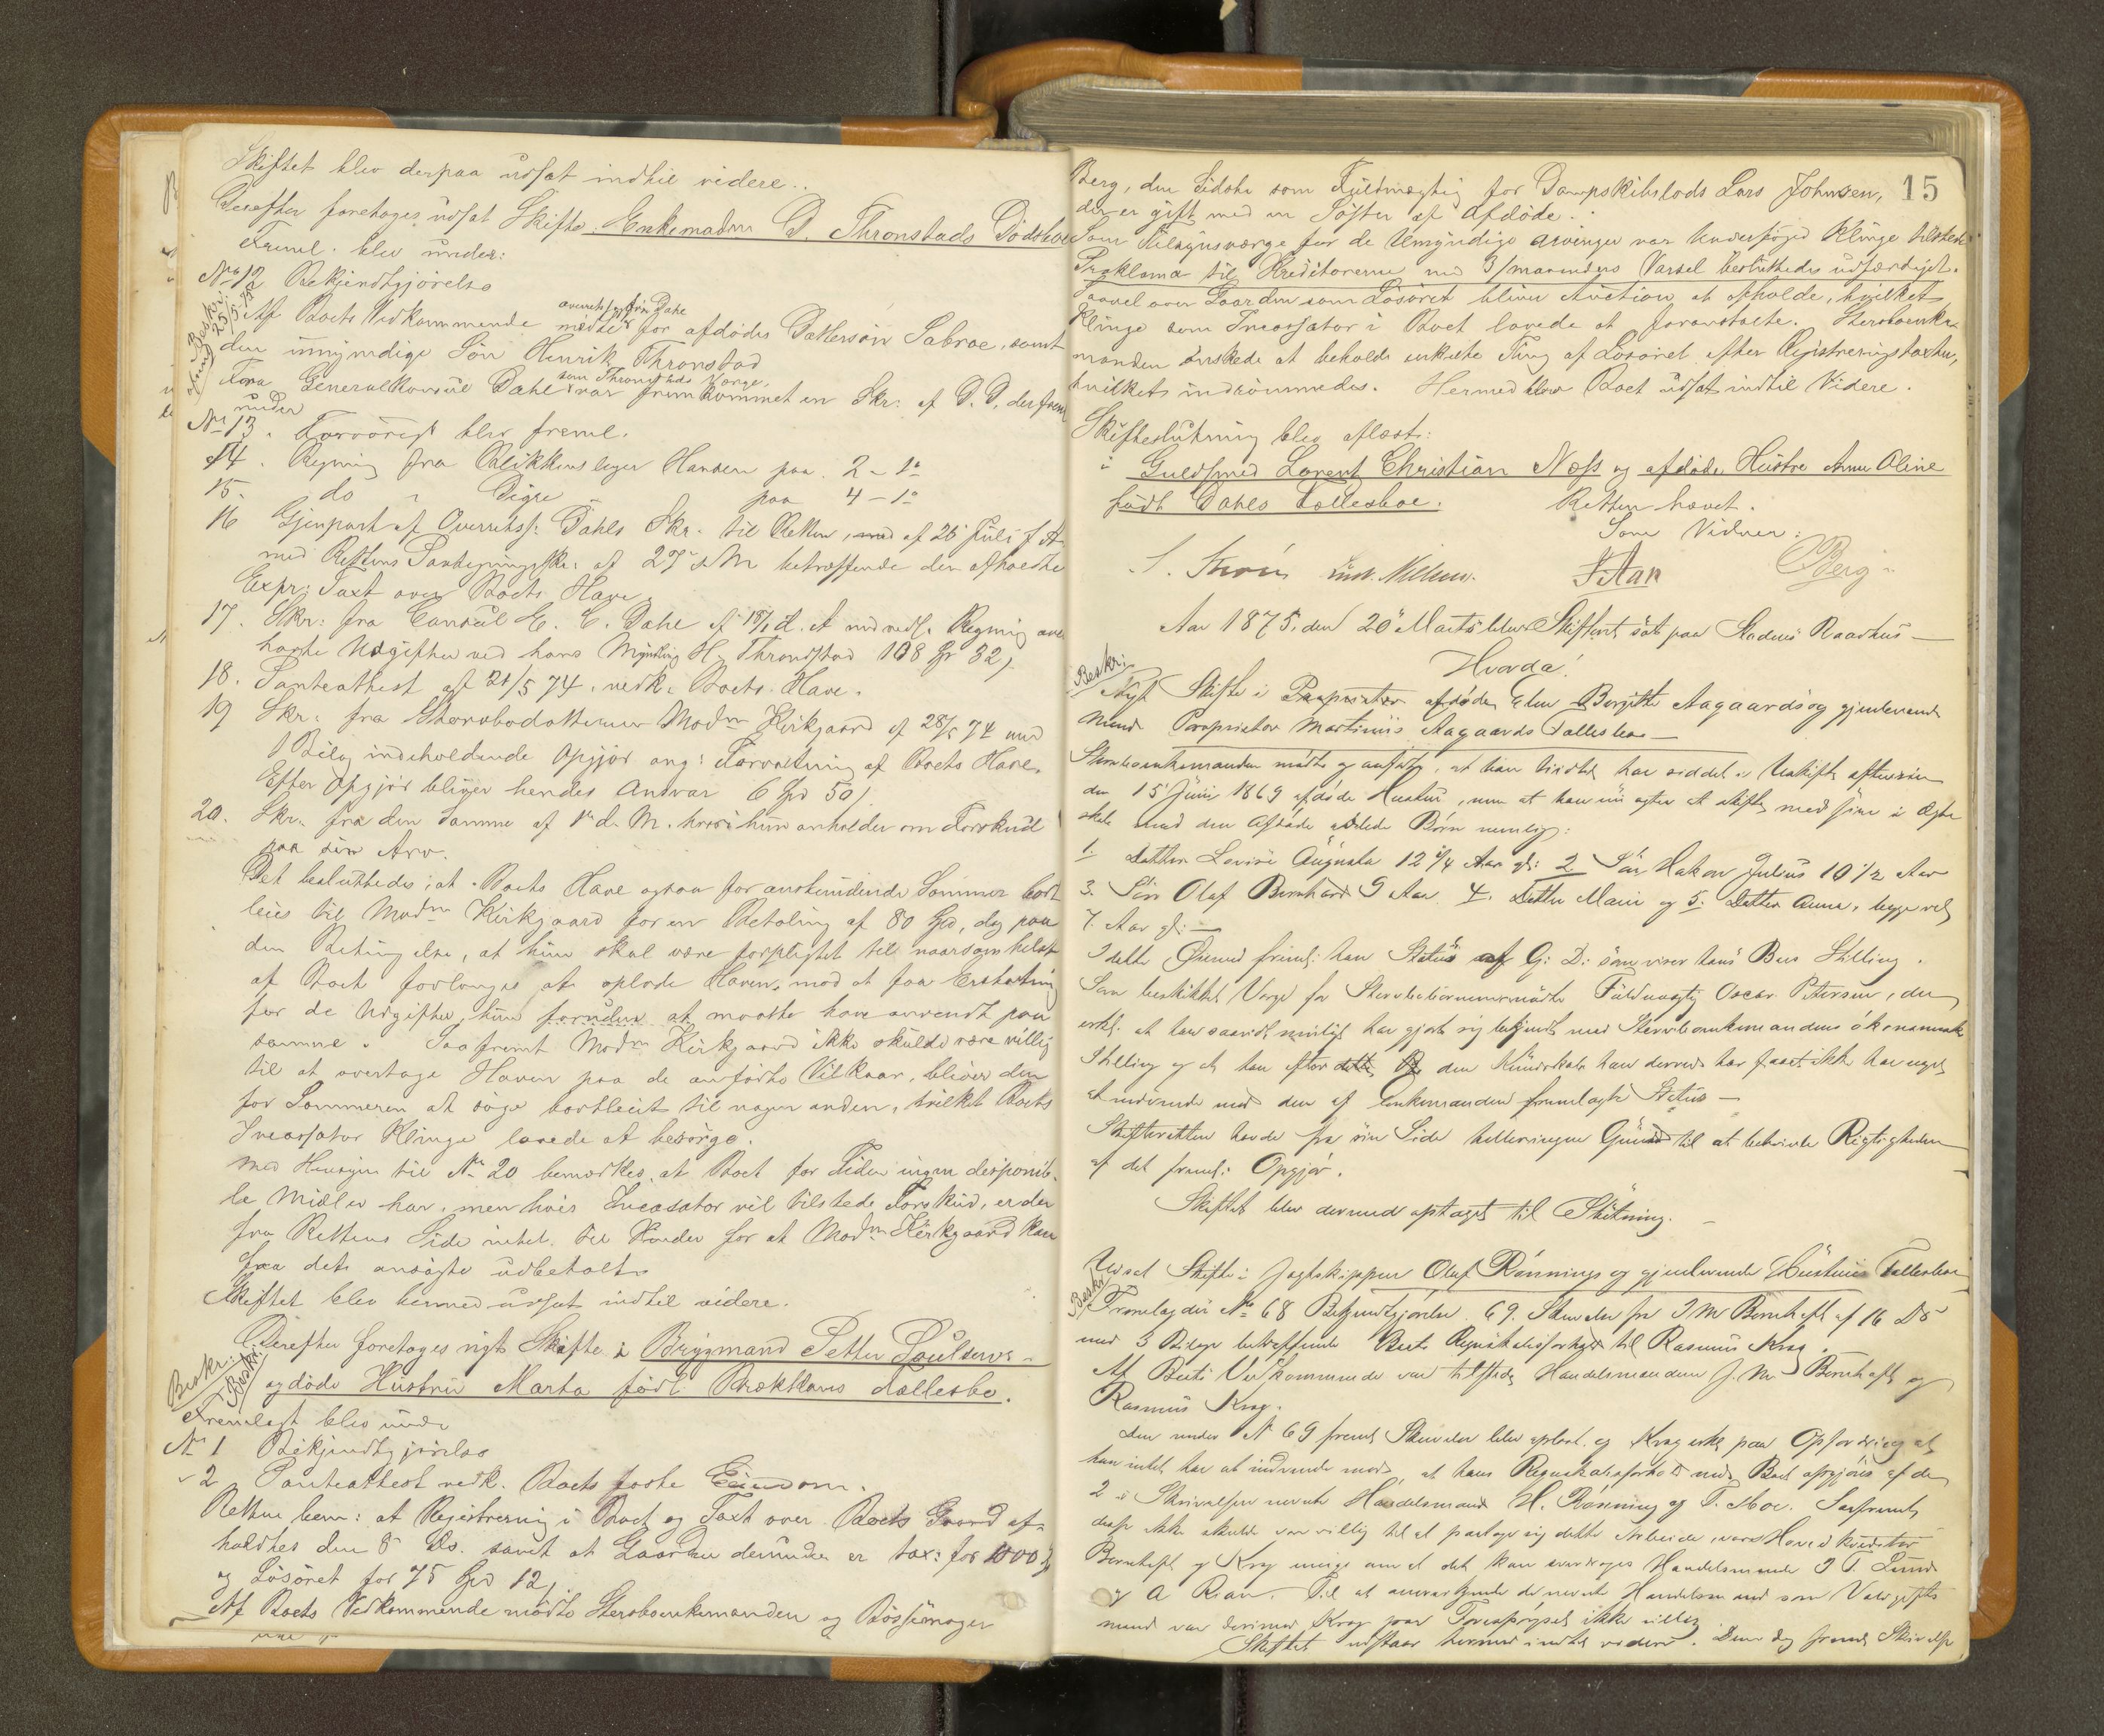 Skiftet blev derpaa udsat indtil videre..
Derefter foretoges udsat Skifte: Enkemadm D. Thronstads Dødsboe
Freml. blev under:
No 12 Bekjendtgjørelse
Beskr. 25/5 75
Af Boets Vedkommende mødte overretssagfører Dahl for afdødes Dattersøn Sabroe, samt
den umyndige Søn Henrik Thronstad
Fra Generalkonsul Dahl som Thronstads Værge var fremkommet en Skr: af D. D. der freml
under
No 13. Forøvrigt blev freml.
14. Regning fra Blikkenslager Hansen paa 2 - 1
15. do " Digre paa 4 - 1
16 Gjenpart af Overretss: Dahls Skr. til Retten, med af 26 Juli f A
med Rettens Paategningsskr: af 27 s M betræffende den afholdte
Expr: Taxt over Boets Have.
17. Skr: fra Consul E. C. Dahl af d. A med vedl. Regning over
havte Udgifter ved hans Myndling H. Thronstad 108 Sp 32
18. Panteattest af 21/5 74. vedk. Boets Have.
19 Skr. fra Stervbodatteren Modm Kirkgaard af 28/5 74 med
1 Bilag indeholdende Opgjør ang: Forvaltning af Boets Have.
Efter Opgjør bliver hendes Ansvar 6 Spd 50
20. Skr. fra den samme af d. M. hvori hun anholder om Forskud
paa sin Arv.
Det besluttedes; at Boets Have ogsaa for anstundende Sommer bort-
leies til Modm Kirkgaard for en Betaling af 80 Spd, dog paa
den Betingelse, at hun skal være forpligtet til naarsomhelst
af Boet forlanges at oplade Haven, mod at faa Erstatning
for de Udgifter, hun forinden at maatte have anvendt paa
samme. Saafremt Modm Kirkgaard ikke skulde være villig
til at overtage Haven paa de anførte Vilkaar, bliver den
for Sommeren at søge bortleiet til nogen anden, hvilket Boets
Incassator Klinge lovede at besørge.
Med Hensyn til No 20 bemærkes, at Boet for Tiden ingen disponib-
le Midler har, men hvis Incassator vil tilstede Forskud, er der
fra Rettens Side intet til Hinder for at Modm Kirkgaard kan
faa det ansøgte udbetalt.
Skiftet blev hermed udsat indtil videre.
Beskr:
Derefter foretoges nyt Skifte i Brygmand Petter Poulsens
og døde Hustru Marta født Brækkans Fællesbo.
Fremlagt blev under
No 1 Bekjendtgjørelse
" 2 Panteattest vedk. Boets faste Eiendom.
Retten bem: at Registrering i Boet og Taxt over Boets Gaard af-
holdtes den 8 Ds. samt at Gaarden derunder er tax: for 1000
og Løsøret for 75 Spd 12
Af Boets Vedkommende mødte Stervboenkemanden og Bøssemager
15
Berg, den Sidste som Fuldmægtig for Dampskibslods Lars Johnsen,
der er gift med en Søster af Afdøde.
Som Tilsynsværge for de Umyndige Arvinger var Underfoged Klinge tilstede
Proklama til Kreditorerne med 3 maaneders Varsel besluttedes udfærdiget.
Saavel over Gaarden som Løsøret bliver Auction at afholde, hvilket
Klinge som Incassator i Boet lovede at foranstalte. Stervboenke-
manden ønskede at beholde enkelte Ting af Løsøret efter Registreringstaxten,
hvilket indrømmedes. Hermed blev Boet udsat indtil Videre.
Skifteslutning blev aflæst:
i Guldsmed Lorentz Christian Næss og afdøde Hustru Anne Oline
født Dahls Fællesboe. Retten hævet.
Som Vidner:
Berg
Aar 1875, den 20 Marts blev Skifteret sat paa Stadens Raadhus —
Hvorda!
Beskr:
Nyt Skifte i Proprietær afdøde Elen Bergitte Aagaards og gjenlevende
Mand Proprietær Martinus Aagaards Fællesboe —
Stervboenkemanden mødte og anførte, at han hidtil har siddet i Uskiftet efter sin
den 15 Juni 1869 afdøde Hustru, men at han nu agter at skifte med sine i Ægte-
skab med den Afdøde avlede Børn nemlig:
1. Datter Lovise Augusta 12 1/4 Aar gl: 2 Søn Hakon Julius 10 1/2 Aar
3. Søn Olaf Bernhard 9 Aar 4. Datter Marie og 5. Datter Anna, begge ved
7. Aar gl: —
I dette Øiemed freml: han Status af G: D: som viser hans Boes Stilling.
Som beskikket Verge for Stervbobørnene mødte Fuldmægtig Oscar Petersen, der
erkl. at han saavidt muligt har gjort sig bekjendt med Stervboenkemandens økonomiske
Stilling og at han efter den Kundskab han derved har faaet ikke har noget
at indvende mod den af Enkemanden fremlagte Status —
Skifteretten havde fra sin Side heller ingen Grund til at betvivle Rigtigheden
af det freml: Opgjør.
Skiftet blev dermed optaget til Slutning.
Beskr
Udsat Skifte i Jagtskipper Oluf Rønnings og gjenlevende Hustrues Fællesboe
Fremlagdes No 68 Bekjendtgjørelse 69. Skrivelse fra I M Bernhoft af 16 Ds
med 3 Bilage betreffende Boets Regnskabsforhold til Rasmus Krog.
Af Boets Vedkommende var tilstede Handelsmændene J. M. Bernhoft og
Rasmus Krog.
Den under No 69 freml Skrivelse blev oplæst og Krog erkl paa Opfordring at
han intet har at indvende mod, at hans Regnskabsforhold med Boet opgjøres af de
2 i Skrivelsen nævnte Handelsmænd H. Rønning og T. Moe. Saafremt
disse ikke skulde være villig til at paatage sig dette Arbeide, vare Hovedkreditor
Bernhoft og Krog enige om at det kan overdrages Handelsmænd I T. Lund
og A Rian. Til at anerkjende de nævnte Handelsmænd som Voldgifts-
mænd var derimod Krog paa Forespørgsel ikke villig
Skiftet udstaar hermed indtil videre. Den dog freml Skrivelse